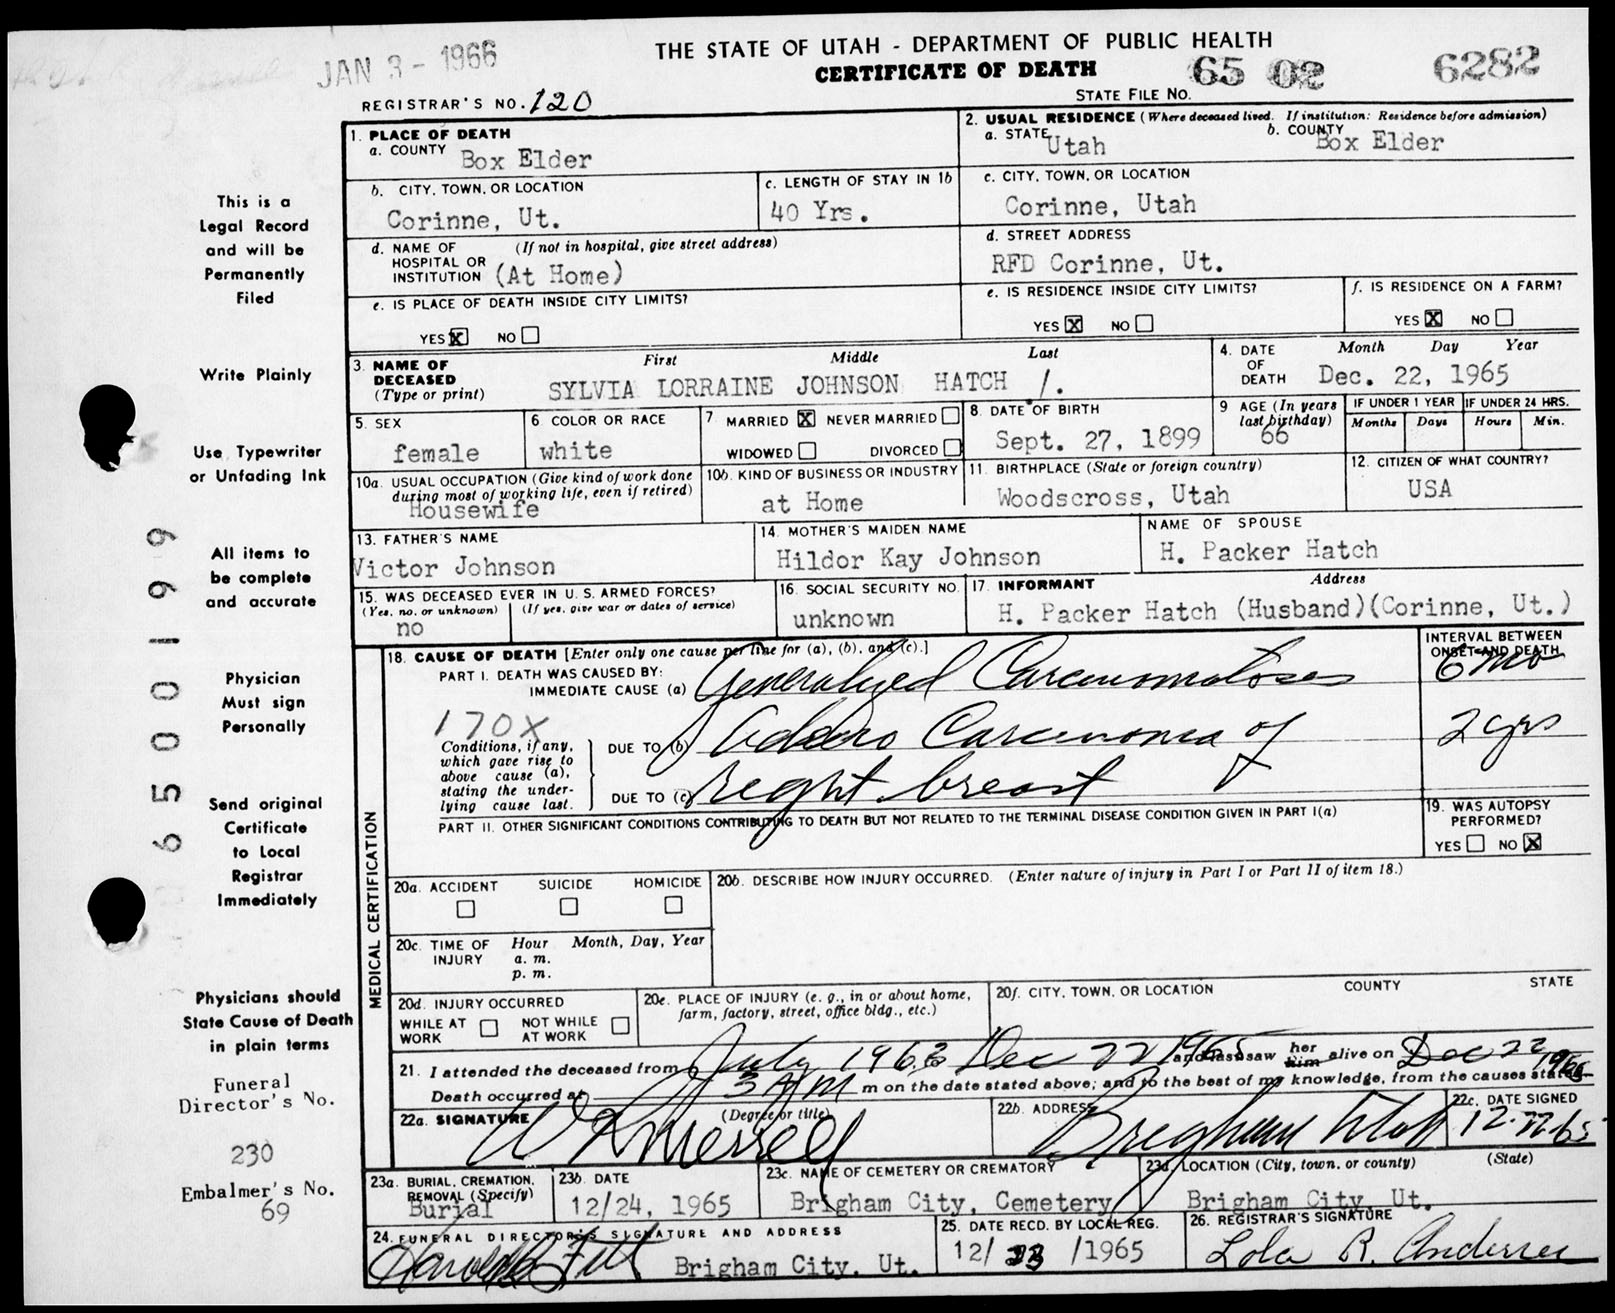 JAN 3 - 1966
THE STATE OF UTAH - DEPARTMENT OF PUBLIC HEALTH
CERTIFICATE OF DEATH 65 02 6282
REGISTRAR'S NO. 120
STATE FILE NO.
1. PLACE OF DEATH
a. COUNTY Box Elder
2. USUAL RESIDENCE (Where deceased lived. If institution: Residence before admission)
a. STATE Utah b. COUNTY Box Elder
b. CITY, TOWN, OR LOCATION
Corinne, Ut.
c. LENGTH OF STAY IN 1b
40 Yrs.
c. CITY, TOWN, OR LOCATION
Corinne, Utah
d. NAME OF HOSPITAL OR INSTITUTION (If not in hospital, give street address)
(At Home)
d. STREET ADDRESS
RFD Corinne, Ut.
e. IS PLACE OF DEATH INSIDE CITY LIMITS?
YES X NO
e. IS RESIDENCE INSIDE CITY LIMITS?
YES X NO
f. IS RESIDENCE ON A FARM?
YES X NO
3. NAME OF DECEASED (Type or print)
First Middle Last
SYLVIA LORRAINE JOHNSON HATCH /.
4. DATE OF DEATH
Month Day Year
Dec. 22, 1965
5. SEX
female
6 COLOR OR RACE
white
7 MARRIED X NEVER MARRIED
WIDOWED DIVORCED
8. DATE OF BIRTH
Sept. 27, 1899
9 AGE (In years last birthday)
66
IF UNDER 1 YEAR
Months Days
IF UNDER 24 HRS.
Hours Min.
10a. USUAL OCCUPATION (Give kind of work done during most of working life, even if retired)
Housewife
10b. KIND OF BUSINESS OR INDUSTRY
at Home
11. BIRTHPLACE (State or foreign country)
Woodscross, Utah
12. CITIZEN OF WHAT COUNTRY?
USA
13. FATHER'S NAME
Victor Johnson
14. MOTHER'S MAIDEN NAME
Hildor Kay Johnson
NAME OF SPOUSE
H. Packer Hatch
15. WAS DECEASED EVER IN U.S. ARMED FORCES?
(Yes, no, or unknown) (If yes, give war or dates of service)
no
16. SOCIAL SECURITY NO.
unknown
17. INFORMANT Address
H. Packer Hatch (Husband)(Corinne, Ut.)
MEDICAL CERTIFICATION
18. CAUSE OF DEATH [Enter only one cause per line for (a), (b), and (c).]
INTERVAL BETWEEN ONSET AND DEATH
PART I. DEATH WAS CAUSED BY:
IMMEDIATE CAUSE (a) Generalized Carcinomatoses 6 mo
170X
Conditions, if any, which gave rise to above cause (a), stating the underlying cause last.
DUE TO (b) Adeno Carcinoma of 2 yrs
DUE TO (c) right breast
PART II. OTHER SIGNIFICANT CONDITIONS CONTRIBUTING TO DEATH BUT NOT RELATED TO THE TERMINAL DISEASE CONDITION GIVEN IN PART I(a)
19. WAS AUTOPSY PERFORMED?
YES NO X
20a. ACCIDENT SUICIDE HOMICIDE
20b. DESCRIBE HOW INJURY OCCURRED. (Enter nature of injury in Part I or Part II of item 18.)
20c. TIME OF INJURY Hour Month, Day, Year
a. m.
p. m.
20d. INJURY OCCURRED
WHILE AT WORK NOT WHILE AT WORK
20e. PLACE OF INJURY (e. g., in or about home, farm, factory, street, office bldg., etc.)
20f. CITY, TOWN, OR LOCATION COUNTY STATE
21. I attended the deceased from July 1963 Dec 22 1965 and last saw her him alive on Dec 22 1965
Death occurred at 3 AM m on the date stated above; and to the best of my knowledge, from the causes stated.
22a. SIGNATURE (Degree or title)
W R Merrell
22b. ADDRESS
Brigham Utah
22c. DATE SIGNED
12-22-65
23a. BURIAL, CREMATION, REMOVAL (Specify)
Burial
23b. DATE
12/24, 1965
23c. NAME OF CEMETERY OR CREMATORY
Brigham City, Cemetery
23d. LOCATION (City, town, or county) (State)
Brigham City, Ut.
24. FUNERAL DIRECTOR'S SIGNATURE AND ADDRESS
Brigham City, Ut.
25. DATE RECD. BY LOCAL REG.
12/ 23 /1965
26. REGISTRAR'S SIGNATURE
Lola R. Andersen
This is a
Legal Record
and will be
Permanently
Filed
Write Plainly
Use Typewriter
or Unfading Ink
All items to
be complete
and accurate
Physician
Must sign
Personally
Send original
Certificate
to Local
Registrar
Immediately
Physicians should
State Cause of Death
in plain terms
Funeral
Director's No.
230
Embalmer's No.
69
6500199